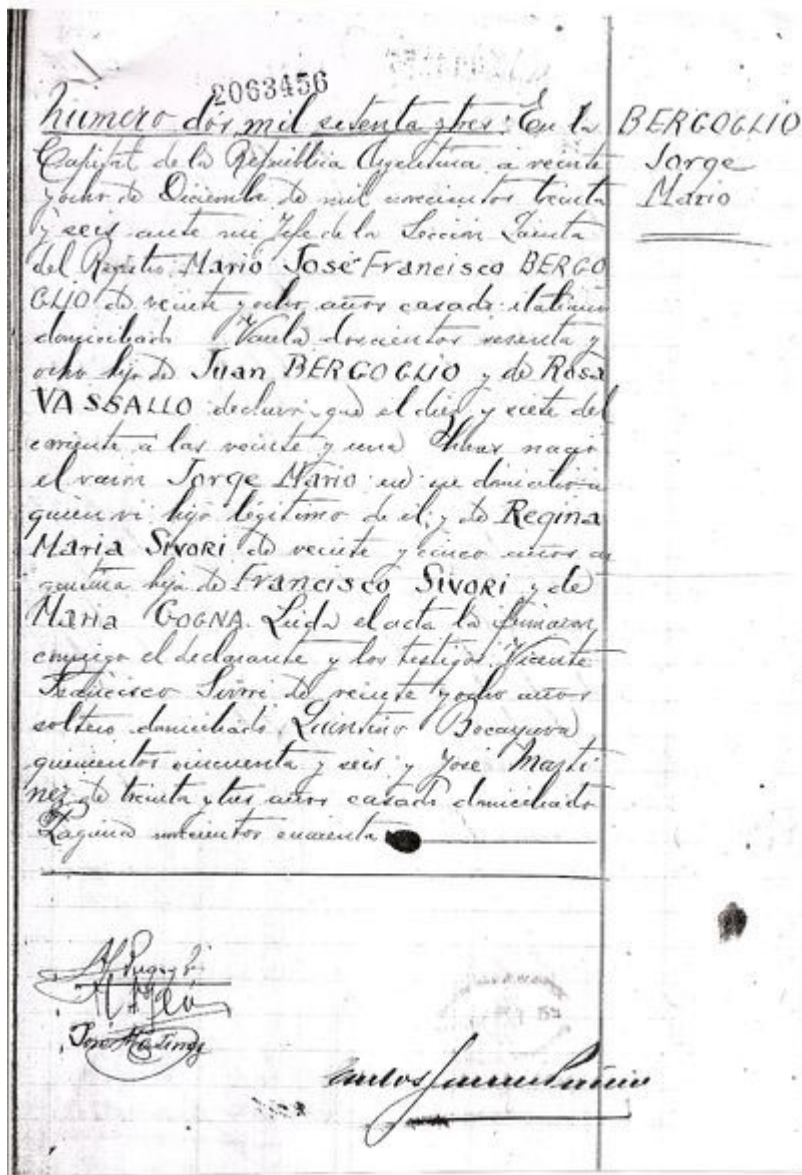 2063456
Número dós mil setenta y tres: En la
Capital de la República Argentina a veinte
y ocho de Diciembre de mil novecientos treinta
y seis ante mi Jefe de la Sección Quinta
del Registro Mario José Francisco BERGO
GLIO de veinte y ocho años casado italiano
domiciliado Varela doscientos sesenta y
ocho hijo de Juan BERGOGLIO y de Rosa
VASSALLO declaró que el diez y siete del
corriente a las veinte y una horas nació
el varón Jorge Mario en su domicilio a
quien vi hijo legítimo de él, y de Regina
Maria SIVORI de veinte y cinco años ar
gentina hija de Francisco SIVORI y de
Maria GOGNA. Leida el acta la firmaron
conmigo el declarante y los testigos Vicente
Francisco Sivori de veinte y ocho años
soltero domiciliado Quintino Bocayuva
quinientos cincuenta y seis y José Marti
nez de treinta y tres años casado domiciliado
Laguna novecientos cincuenta
BERGOGLIO
Jorge
Mario
José Martinez
Carlos